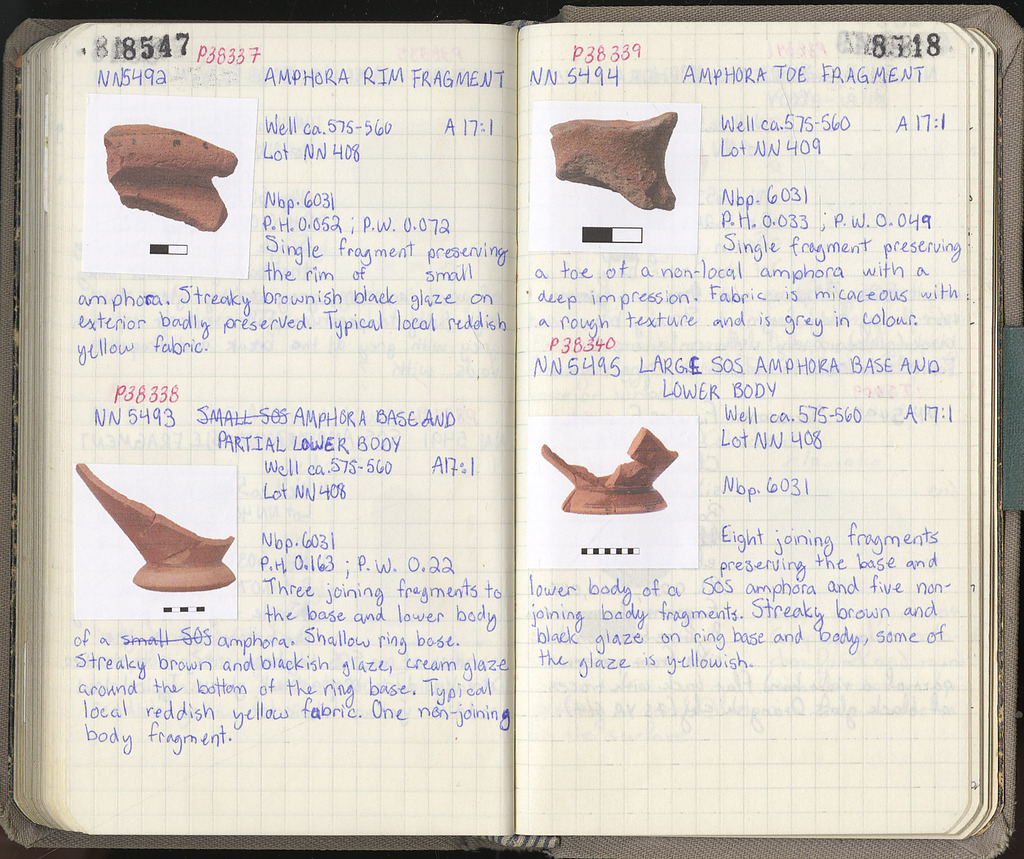 8547
P38337
NN5492 AMPHORA RIM FRAGMENT
Well ca.575-560 A 17:1
Lot NN 408
Nbp. 6031
P.H. 0.052 ; P.W. 0.072
Single fragment preserving
the rim of small
amphora. Streaky brownish black glaze on
exterior badly preserved. Typical local reddish
yellow fabric.
P38338
NN 5493 SMALL SOS AMPHORA BASE AND
PARTIAL LOWER BODY
Well ca.575-560 A17:1
Lot NN 408
Nbp. 6031
P.H. 0.163 ; P.W. 0.22
Three joining fragments to
the base and lower body
of a small SOS amphora. Shallow ring base.
Streaky brown and blackish glaze, cream glaze
around the bottom of the ring base. Typical
local reddish yellow fabric. One non-joining
body fragment.
8518
P38339
NN 5494 AMPHORA TOE FRAGMENT
Well ca.575-560 A 17:1
Lot NN 409
Nbp. 6031
P.H. 0.033 ; P.W. 0.049
Single fragment preserving
a toe of a non-local amphora with a
deep impression. Fabric is micaceous with
a rough texture and is grey in colour.
P38340
NN 5495 LARGE SOS AMPHORA BASE AND
LOWER BODY
Well ca.575-560 A 17:1
Lot NN 408
Nbp. 6031
Eight joining fragments
preserving the base and
lower body of a SOS amphora and five non-
joining body fragments. Streaky brown and
black glaze on ring base and body, some of
the glaze is yellowish.